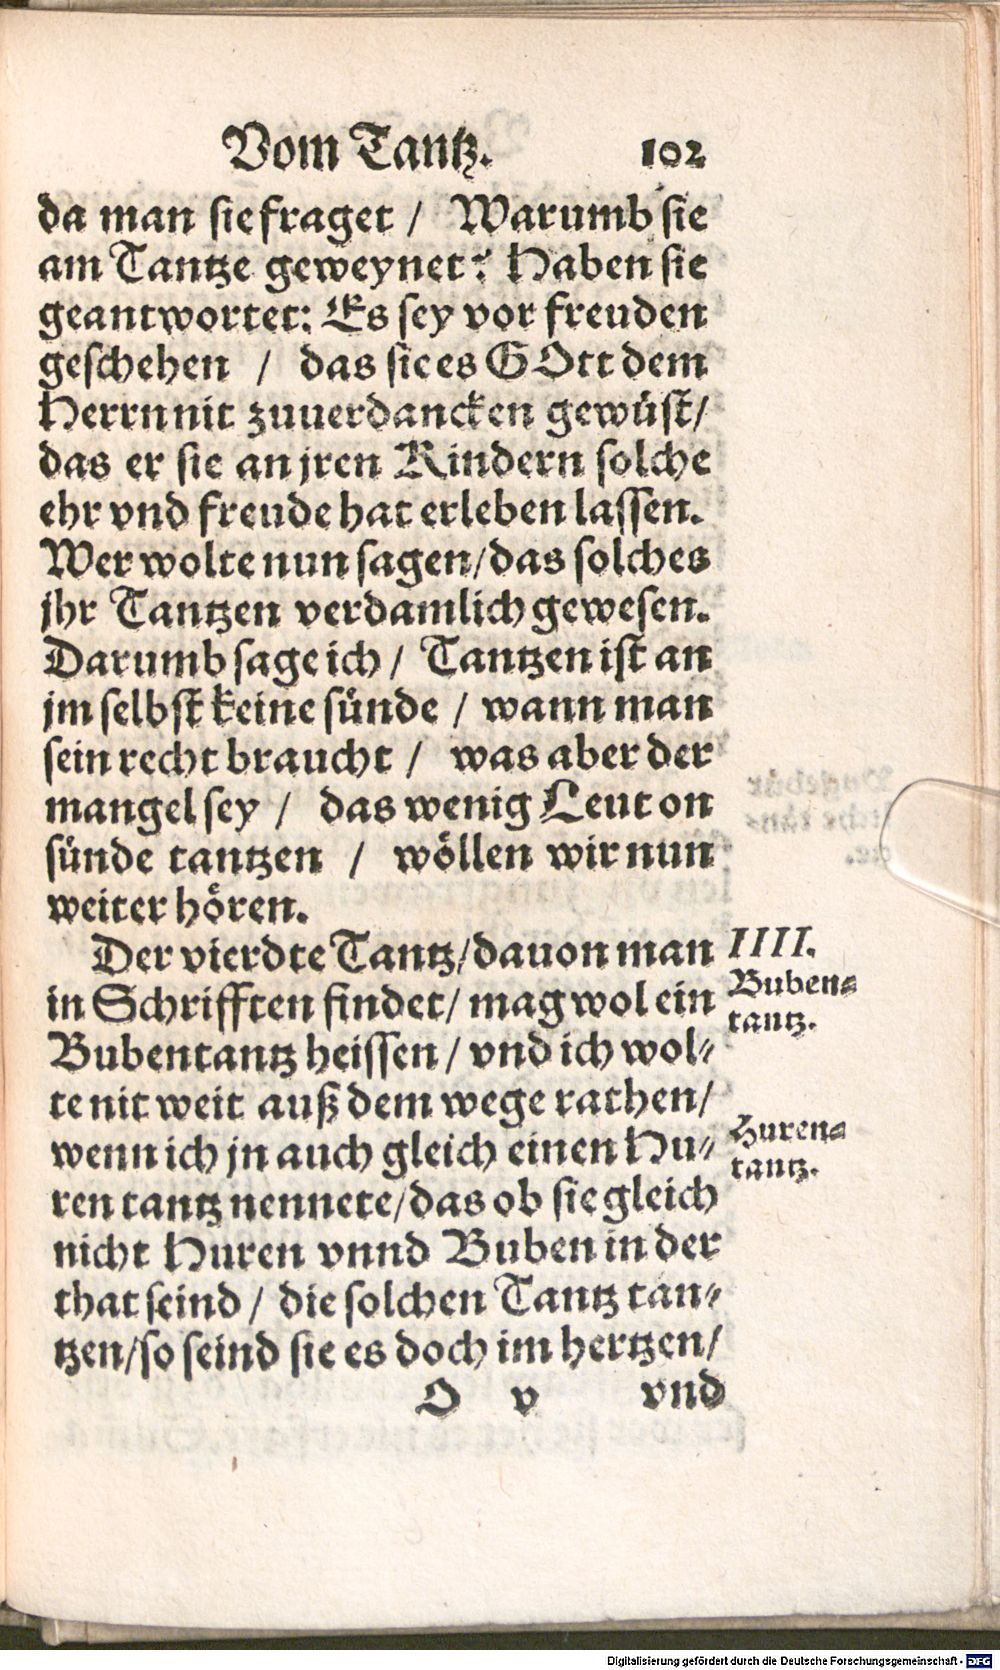 Vom Tantz. 102
da man sie fraget / Warumb sie
am Tantze geweynet? Haben sie
geantwortet: Es sey vor freuden
geschehen / das sie es GOtt dem
Herrn nit zuuerdancken gewüst/
das er sie an jren Kindern solche
ehr vnd freude hat erleben lassen.
Wer wolte nun sagen/das solches
jhr Tantzen verdamlich gewesen.
Darumb sage ich / Tantzen ist an
jm selbst keine sünde / wann man
sein recht braucht / was aber der
mangel sey / das wenig Leut on
sünde tantzen / wöllen wir nun
weiter hören.
Der vierdte Tantz/dauon man
in Schrifften findet/ mag wol ein
Bubentantz heissen / vnd ich wol-
te nit weit auß dem wege rathen/
wenn ich jn auch gleich einen Hu-
ren tantz nennete/das ob sie gleich
nicht Huren vnnd Buben in der
that seind / die solchen Tantz tan-
tzen/so seind sie es doch im hertzen/
O v vnd
IIII.
Buben-
tantz.
Huren-
tantz.
Digitalisierung gefördert durch die Deutsche Forschungsgemeinschaft - DFG